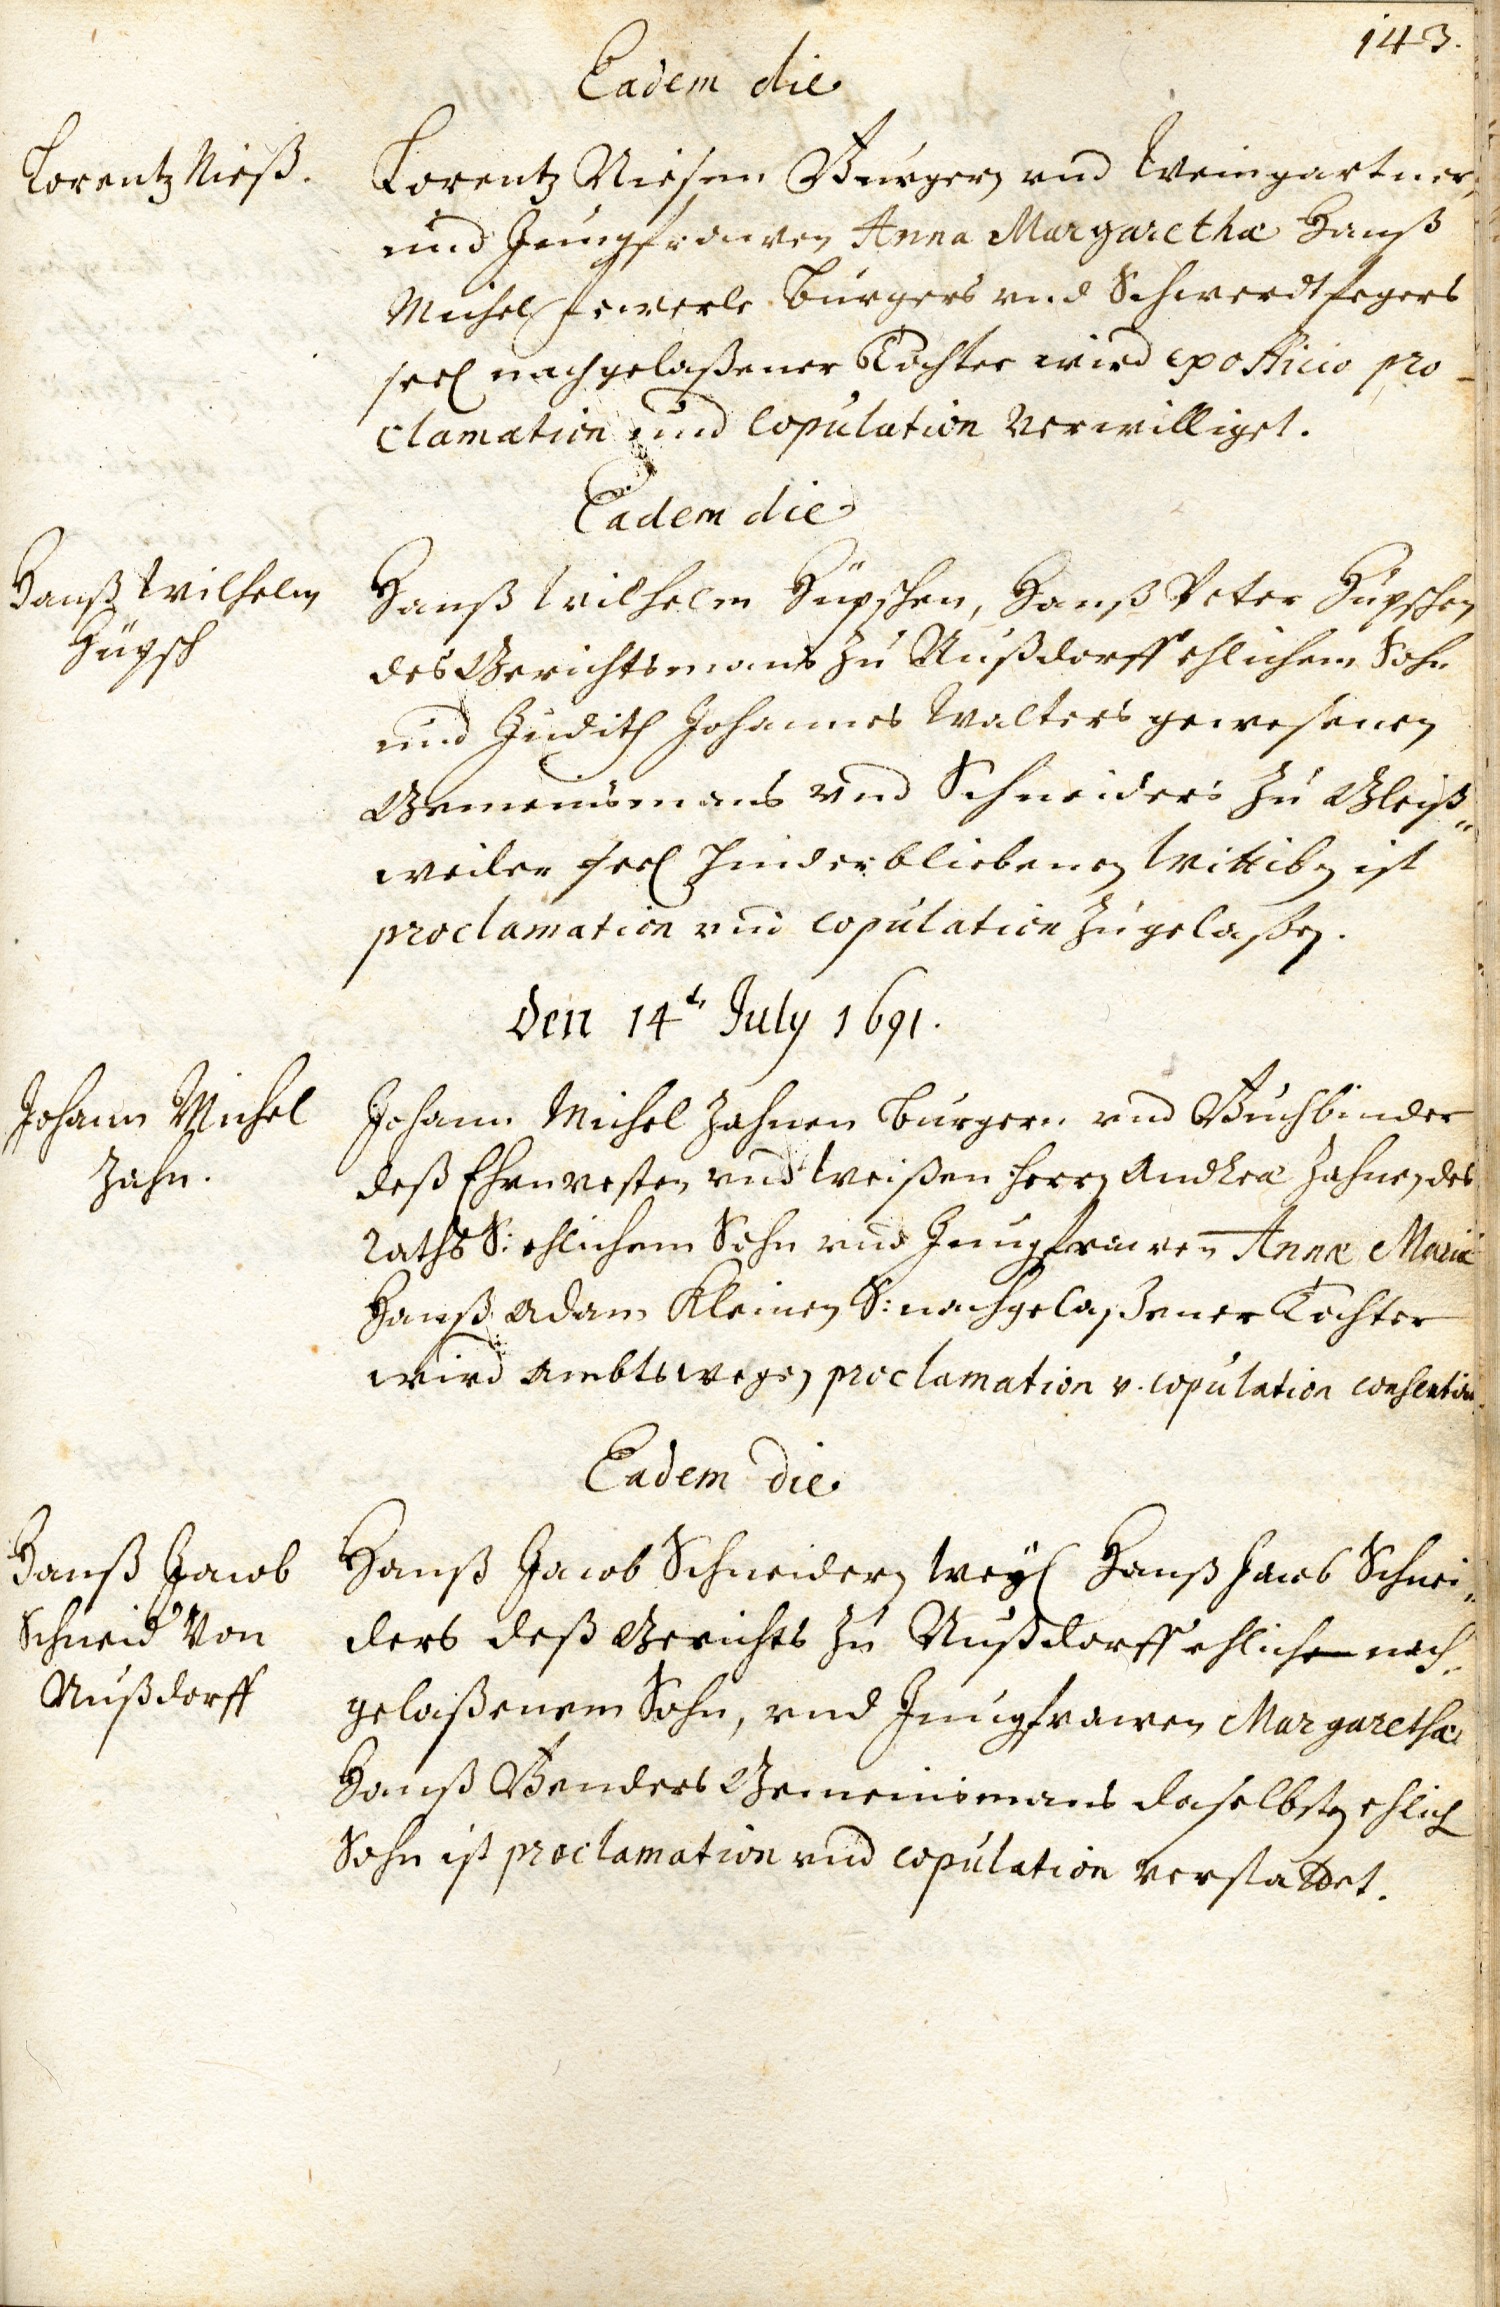 143.
Eadem die
Lorentz Nieß.
Lorentz Niesen Burgern und Weingartner,
und Jungfrawen Anna Margaretha Hanß
Michel Burgers und Schwerdtfegers
seel nachgelaßener Tochter wird ex officio pro-
clamation und Copulation verwilliget.
Eadem die
Hanß Wilhelm
Hüpsch
Hanß Wilhelm Hüpschen, Hanß Peter Hüpschen
des Gerichtsmans zu Nußdorff ehlichem Sohn
und Judith Johannes Walters gewesenen
Gemeinsmans und Schneiders zu Gleiß„
weiler seel hinderbliebenen Wittiben ist
proclamation und copulation zugelaßen.
Den 14t July 1691.
Johann Michel
Zahn.
Johann Michel Zahnen Burgern und Buchbinder
deß Ehrnvesten und Weißen Herrn Andreæ Zahnen des
Raths S: ehlichem Sohn und Jungfrawen Annæ Mariæ
Hanß Adam Kleinen S: nachgelaßener Tochter
wird Ambtswegen proclamation v. copulation
Eadem die
Hanß Jacob
Schneid Von
Nußdorff
Hanß Jacob Schneidern weyl Hanß Jacob Schnei„
ders deß Gerichts zu Nußdorff ehlichen nach-
gelaßenem Sohn, und Jungfrawen Margaretha
Hanß Benders Gemeinsmans daselbsten ehlich
Sohn ist proclamation und copulation verstattet.